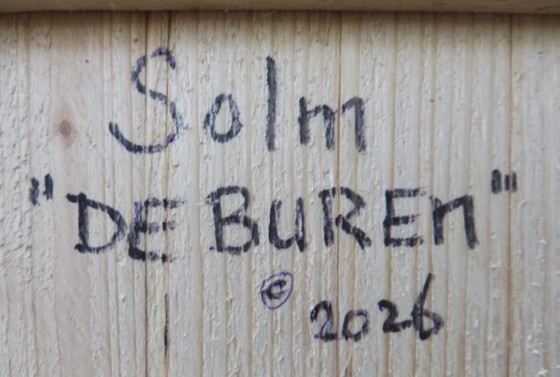 Solm
"DE BUREN"
© 2026